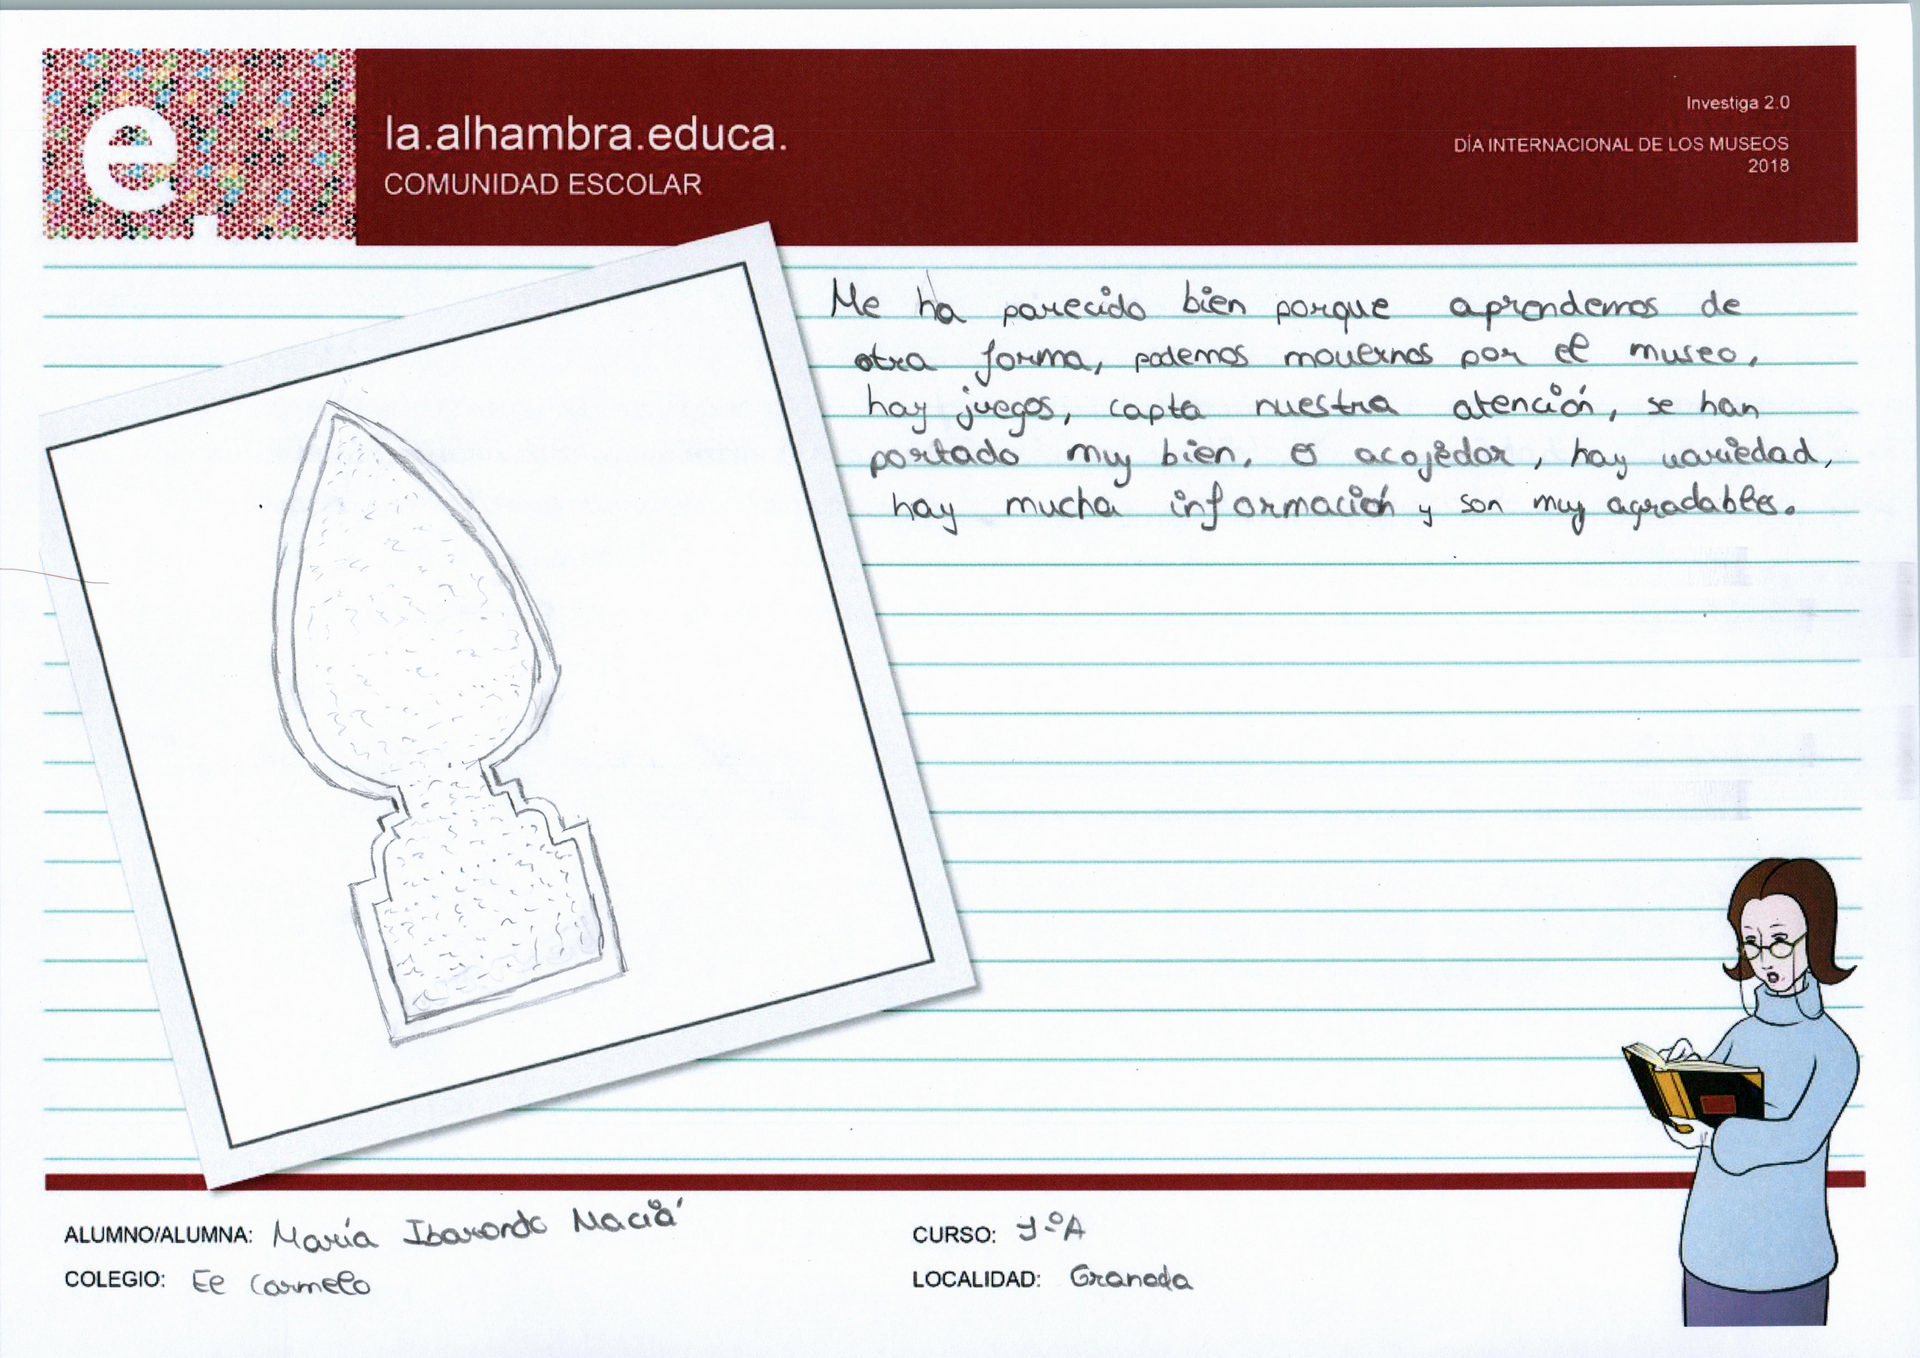 e.
la.alhambra.educa.
COMUNIDAD ESCOLAR
Investiga 2.0
DÍA INTERNACIONAL DE LOS MUSEOS
2018
Me ha parecido bien porque aprendemos de
otra forma, podemos movernos por el museo,
hay juegos, capta nuestra atención, se han
portado muy bien, es acojedor, hay variedad,
hay mucha información y son muy agradables.
ALUMNO/ALUMNA: María Ibarondo Maciá
CURSO: 1ºA
COLEGIO: El Carmelo
LOCALIDAD: Granada